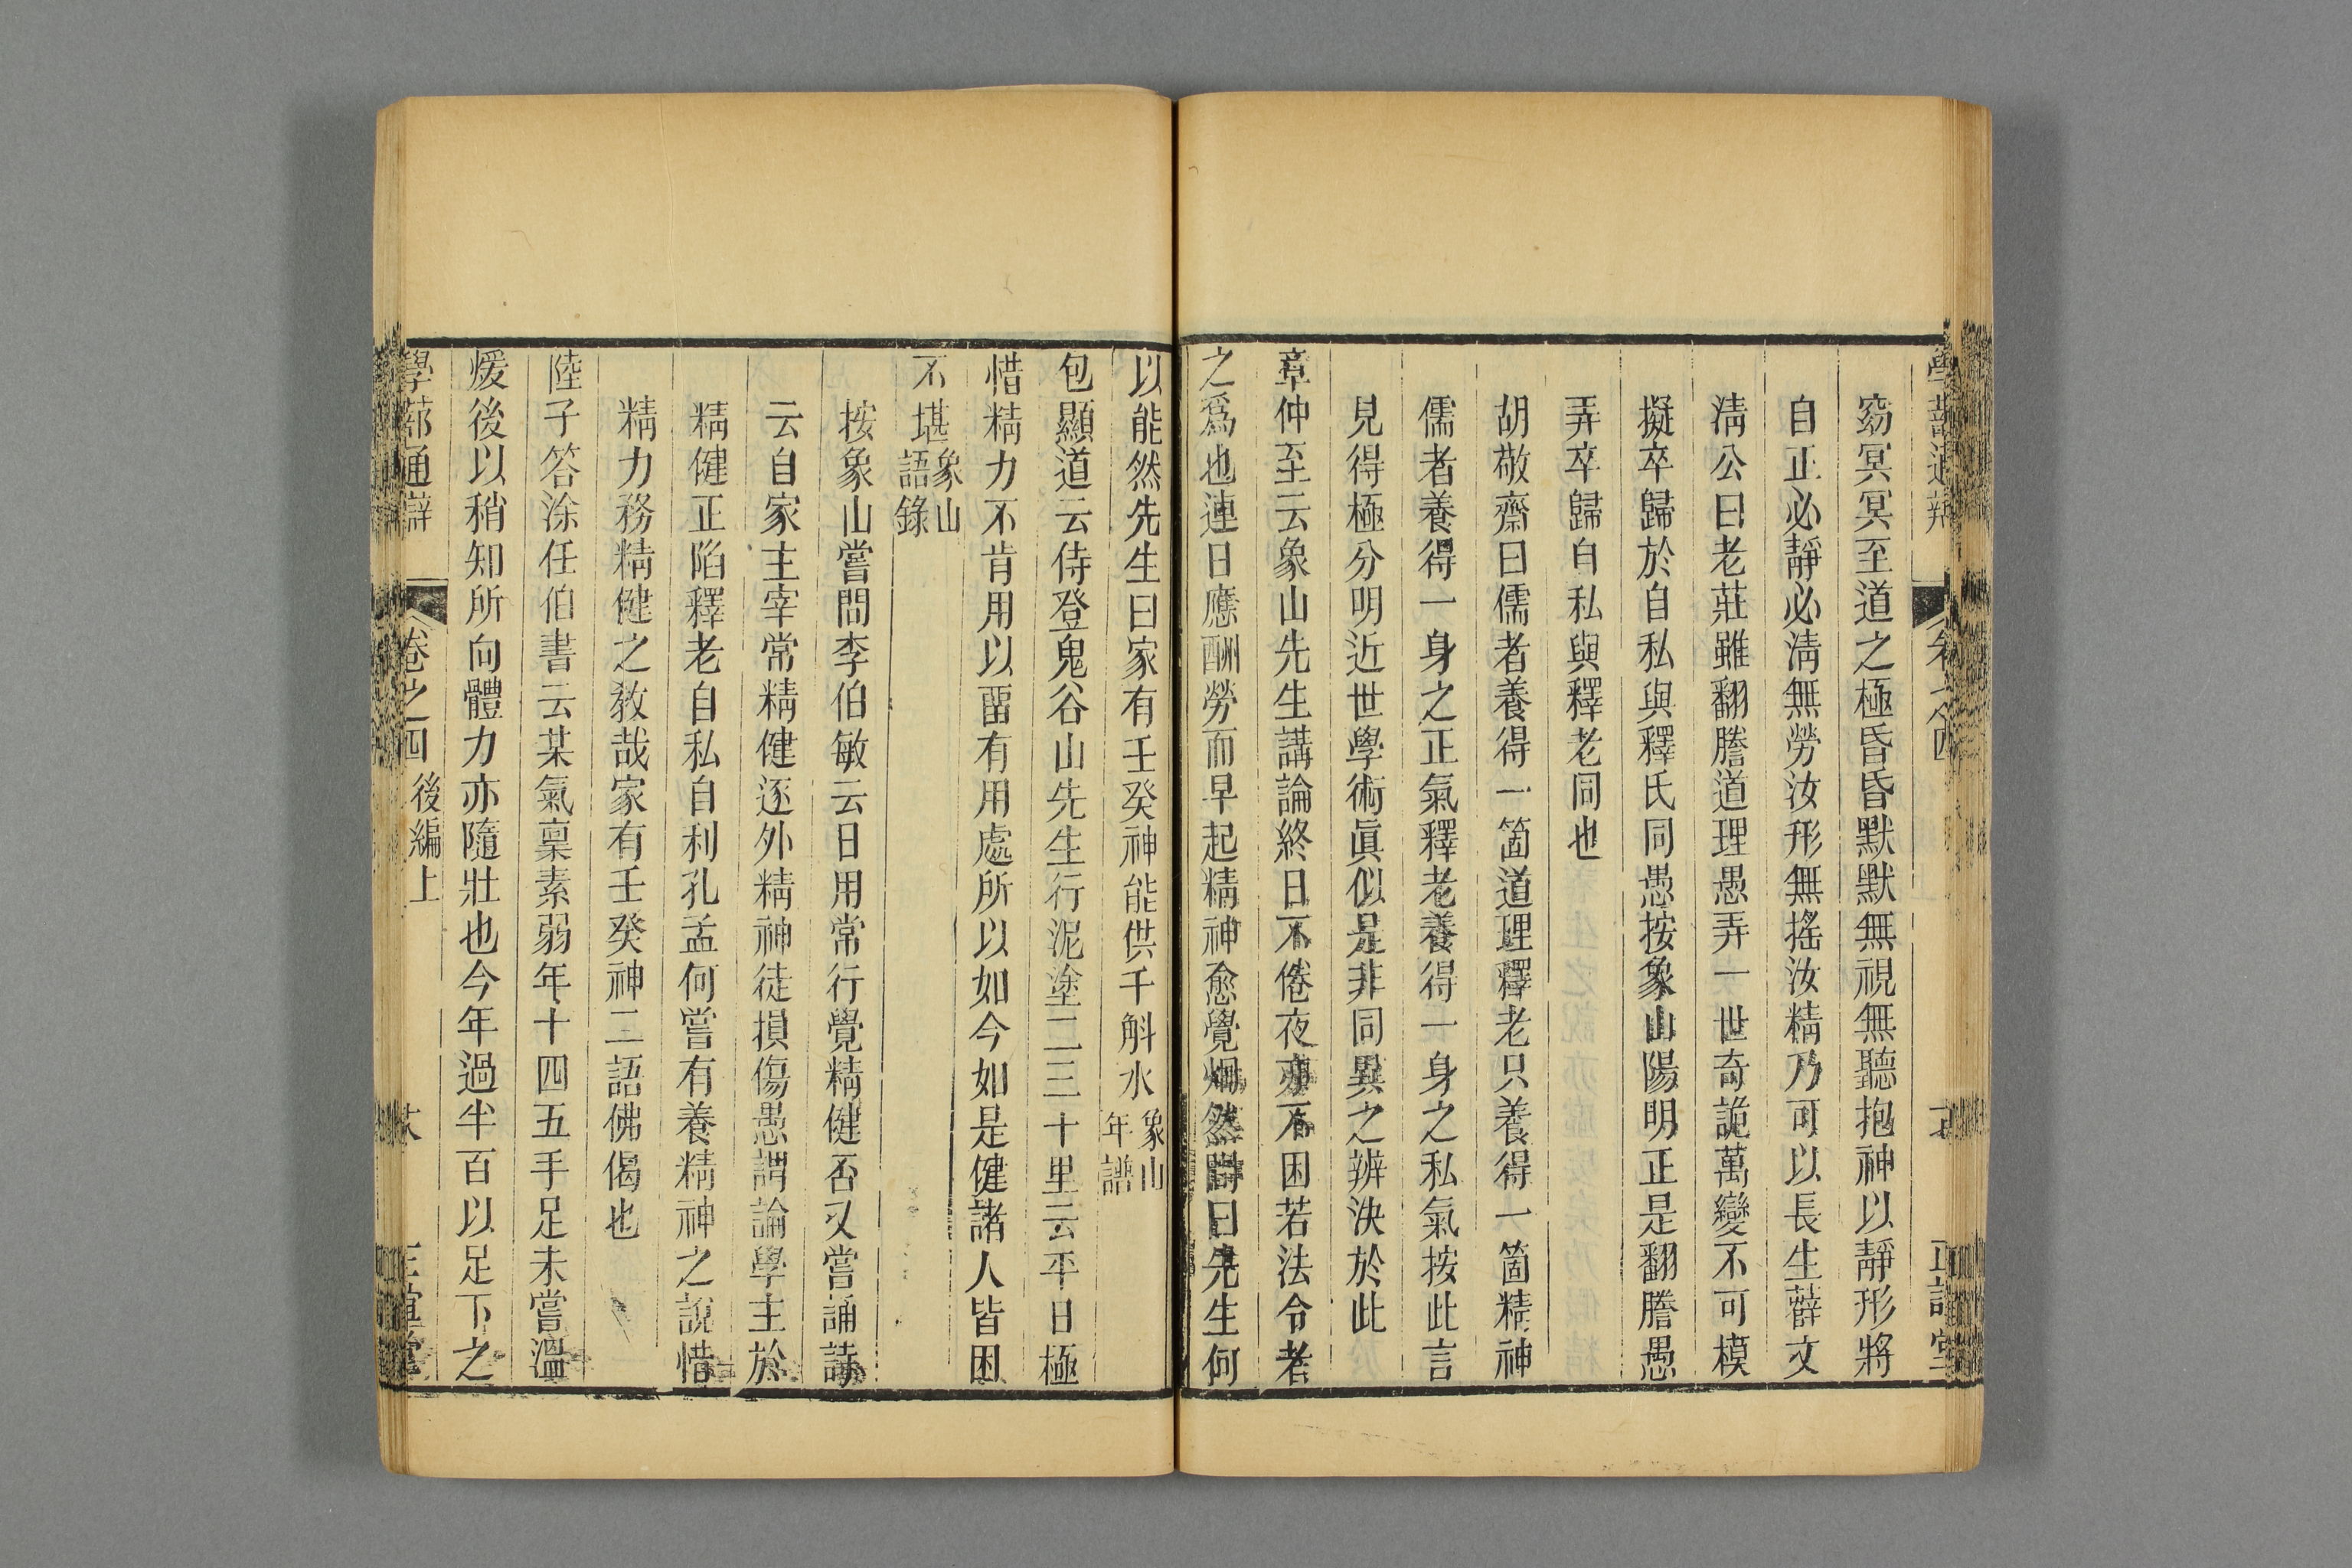 窈冥冥至道之極昏昏默默無視無聽抱神以靜形將
自正必靜必淸無勞汝形無搖汝精乃可以長生薛文
淸公曰老莊雖翻謄道理愚弄一世奇詭萬變不可模
擬卒歸於自私與釋氏同愚按象山陽明正是翻謄愚
弄卒歸自私與釋老同也
胡敬齋曰儒者養得一箇道理釋老只養得一箇精神
儒者養得一身之正氣釋老養得一身之私氣按此言
見得極分明近世學術眞似是非同異之辨決於此
章仲至云象山先生講論終日不倦夜亦不困若法令者
之爲也連日應酬勞而早起精神愈覺烱然問曰先生何
以能然先生曰家有壬癸神能供千斛水象山年譜
包顯道云侍登鬼谷山先生行泥塗二三十里云平日極
惜精力不肯用以畱有用處所以如今如是健諸人皆困
不堪象山語錄
按象山嘗問李伯敏云日用常行覺精健否又嘗誦詩
云自家主宰常精健逐外精神徒損傷愚謂論學主於
精健正陷釋老自私自利孔孟何嘗有養精神之說惜
精力務精健之敎哉家有壬癸神二語佛偈也
陸子答涂任伯書云某氣稟素弱年十四五手足未嘗溫
煖後以稍知所向體力亦隨壯也今年過半百以足下之
學蔀通辯 卷之四 後編上